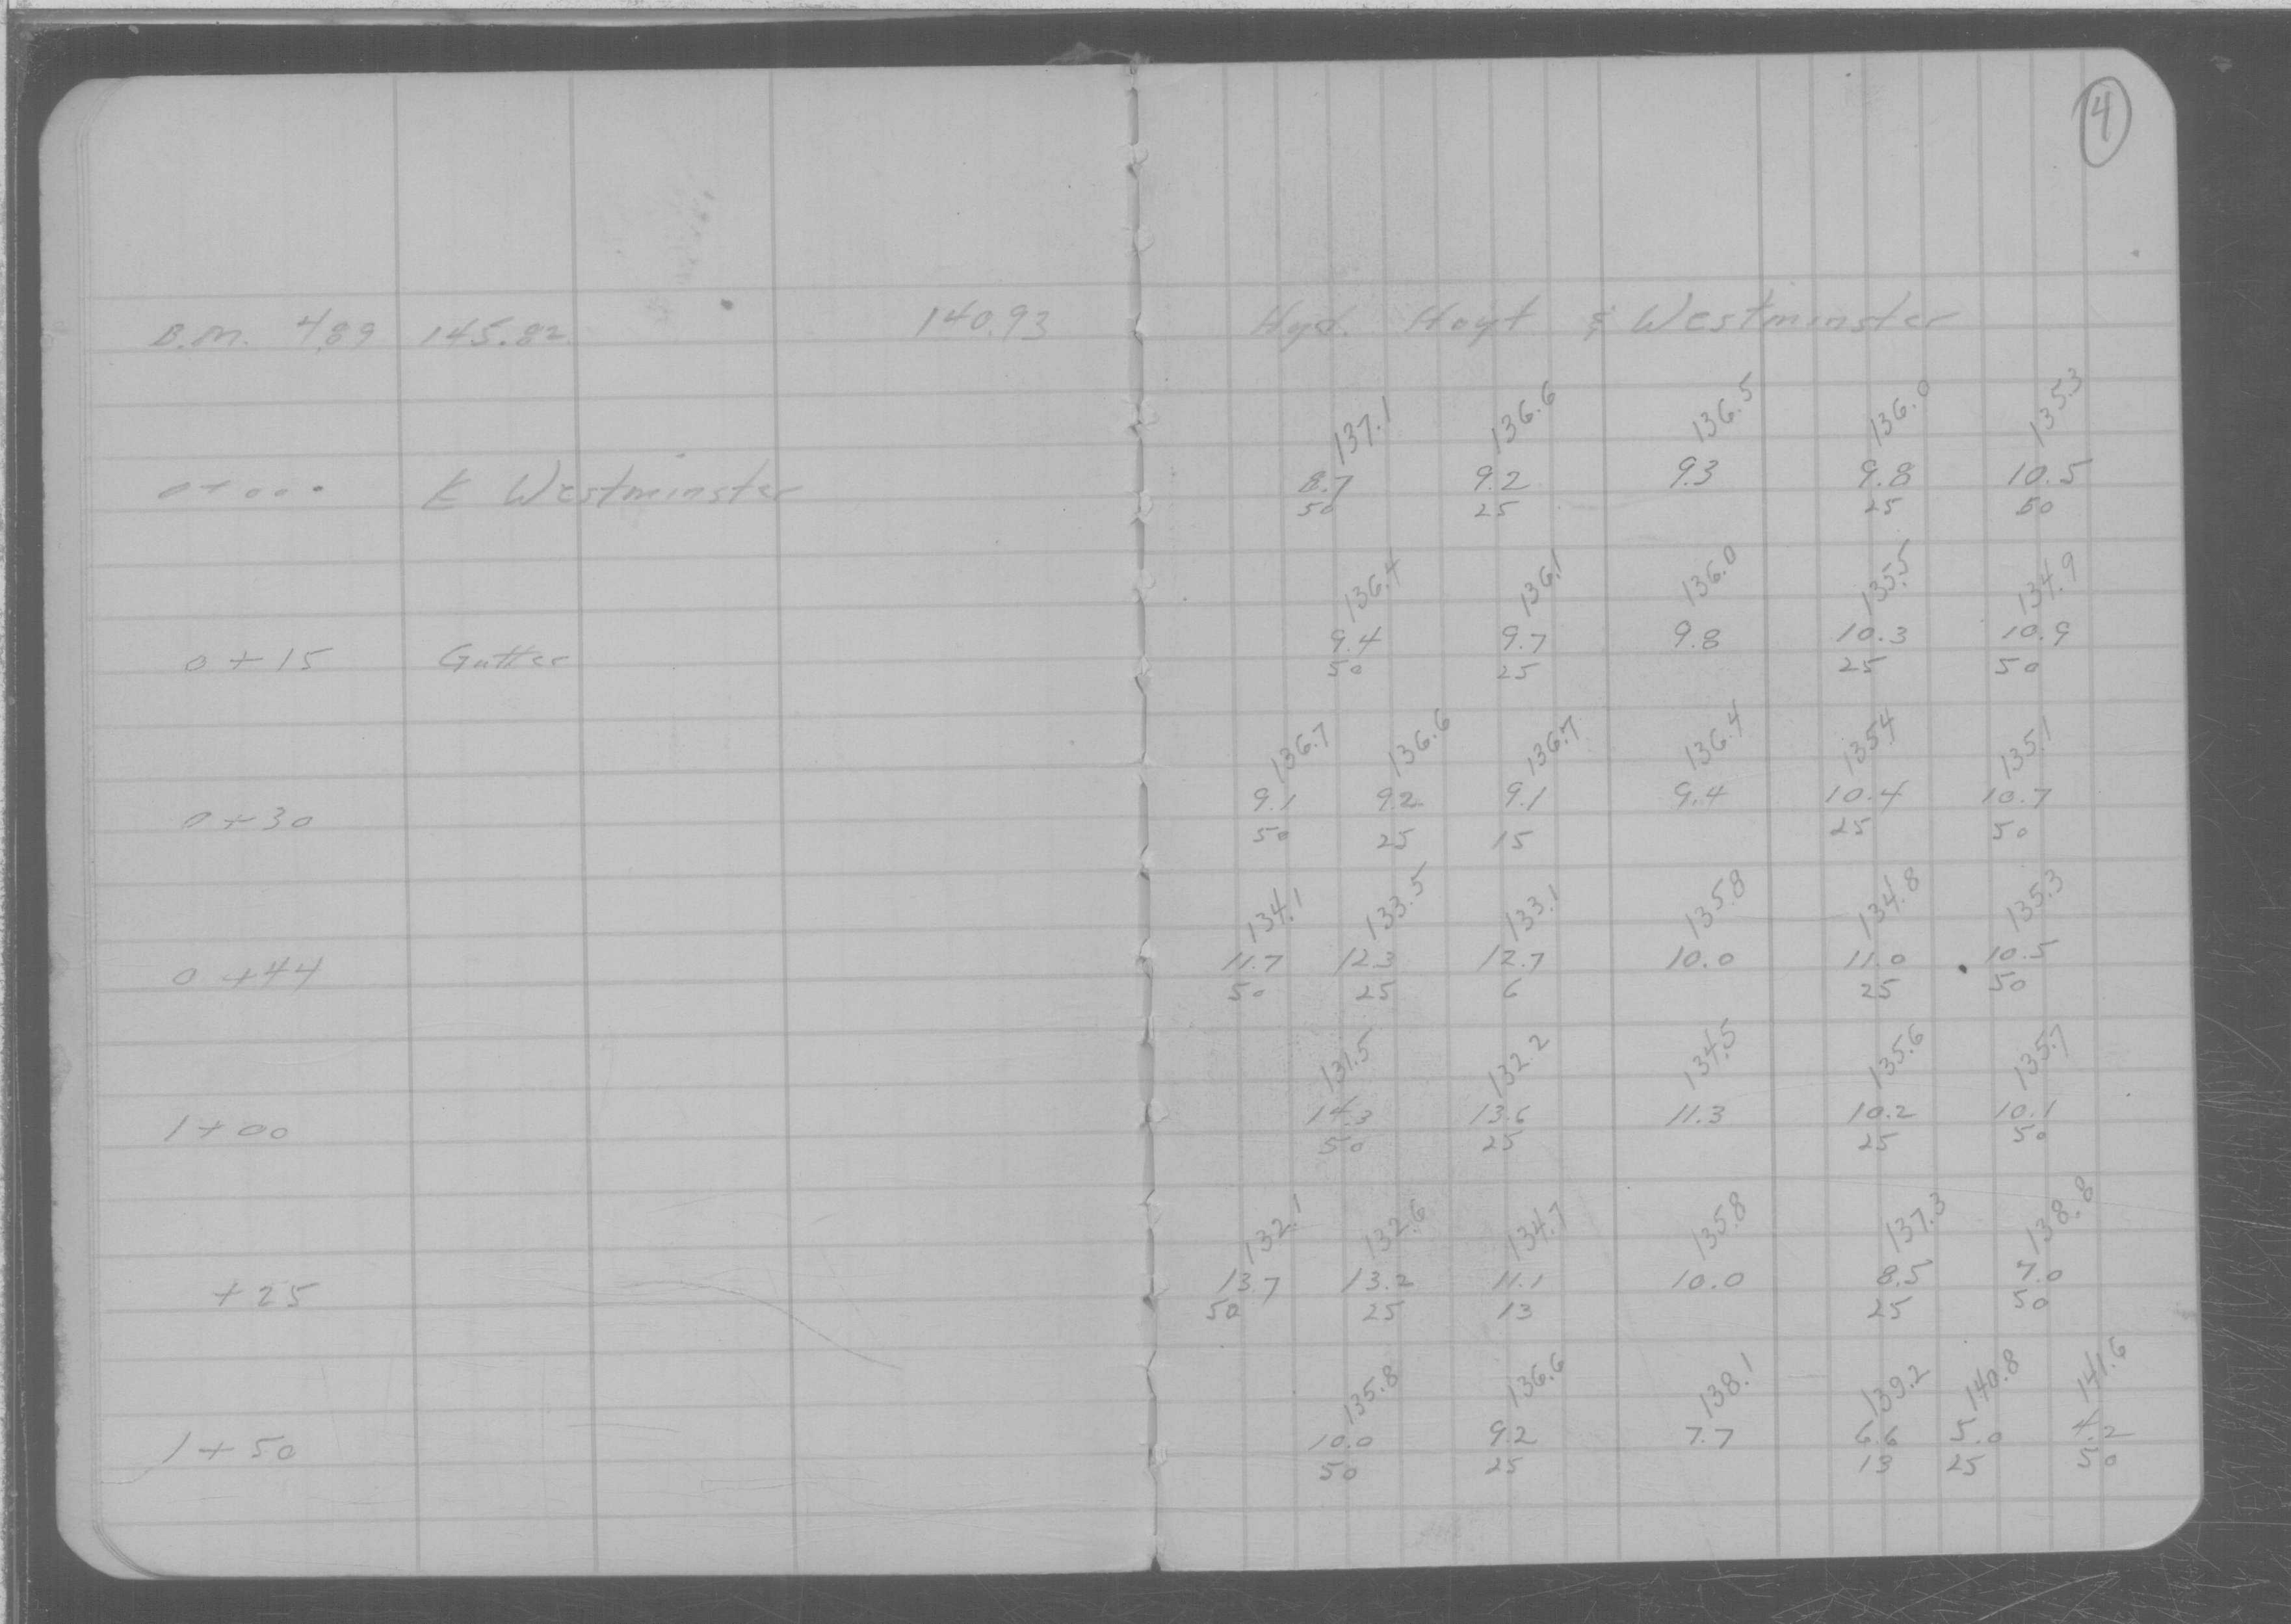 4
B.M. 4.89 145.82 140.93 Hyd. Hoyt & Westminster
137.1 136.6 136.5 136.0 135.3
0+00 £ Westminster 8.7 9.2 9.3 9.8 10.5
50 25 25 50
136.4 136.1 136.0 135.5 134.9
0+15 Gutter 9.4 9.7 9.8 10.3 10.9
50 25 25 50
136.7 136.6 136.7 136.4 135.4 135.1
0+30 9.1 9.2 9.1 9.4 10.4 10.7
50 25 15 25 50
134.1 133.5 133.1 135.8 134.8 135.3
0+44 11.7 12.3 12.7 10.0 11.0 10.5
50 25 6 25 50
131.5 132.2 134.5 135.6 135.7
1+00 14.3 13.6 11.3 10.2 10.1
50 25 25 50
132.1 132.6 134.7 135.8 137.3 138.8
+25 13.7 13.2 11.1 10.0 8.5 7.0
50 25 13 25 50
135.8 136.6 138.1 139.2 140.8 141.6
1+50 10.0 9.2 7.7 6.6 5.0 4.2
50 25 13 25 50